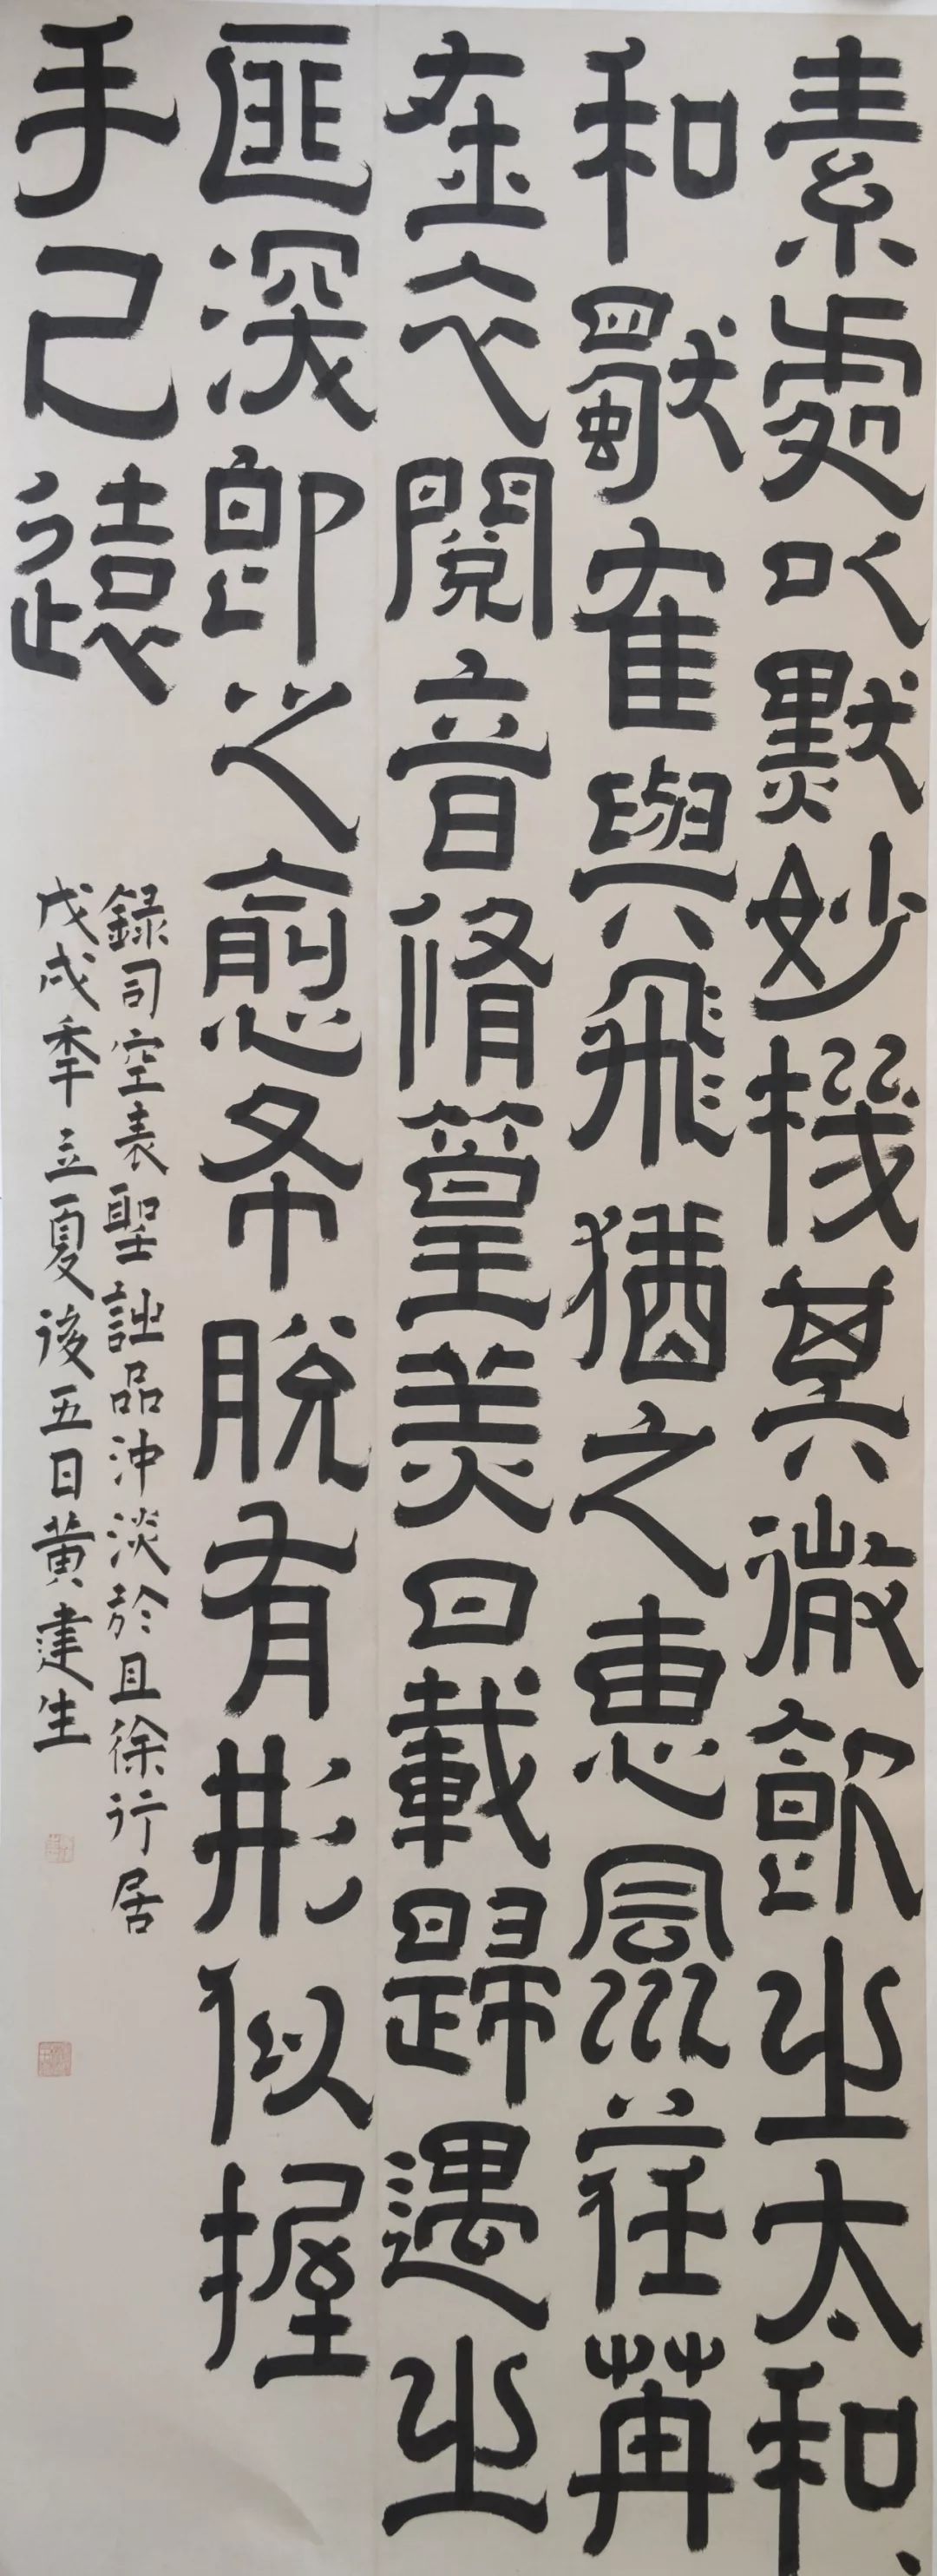 素處以默妙機其微飲之太和、
和獨隺與飛猶之惠風荏苒
在衣閱音脩篁美曰載歸遇之
匪深即之愈希脫有形似握
手已遠
錄司空表聖詩品沖淡於且徐行居
戊戌秊立夏後五日黃建生